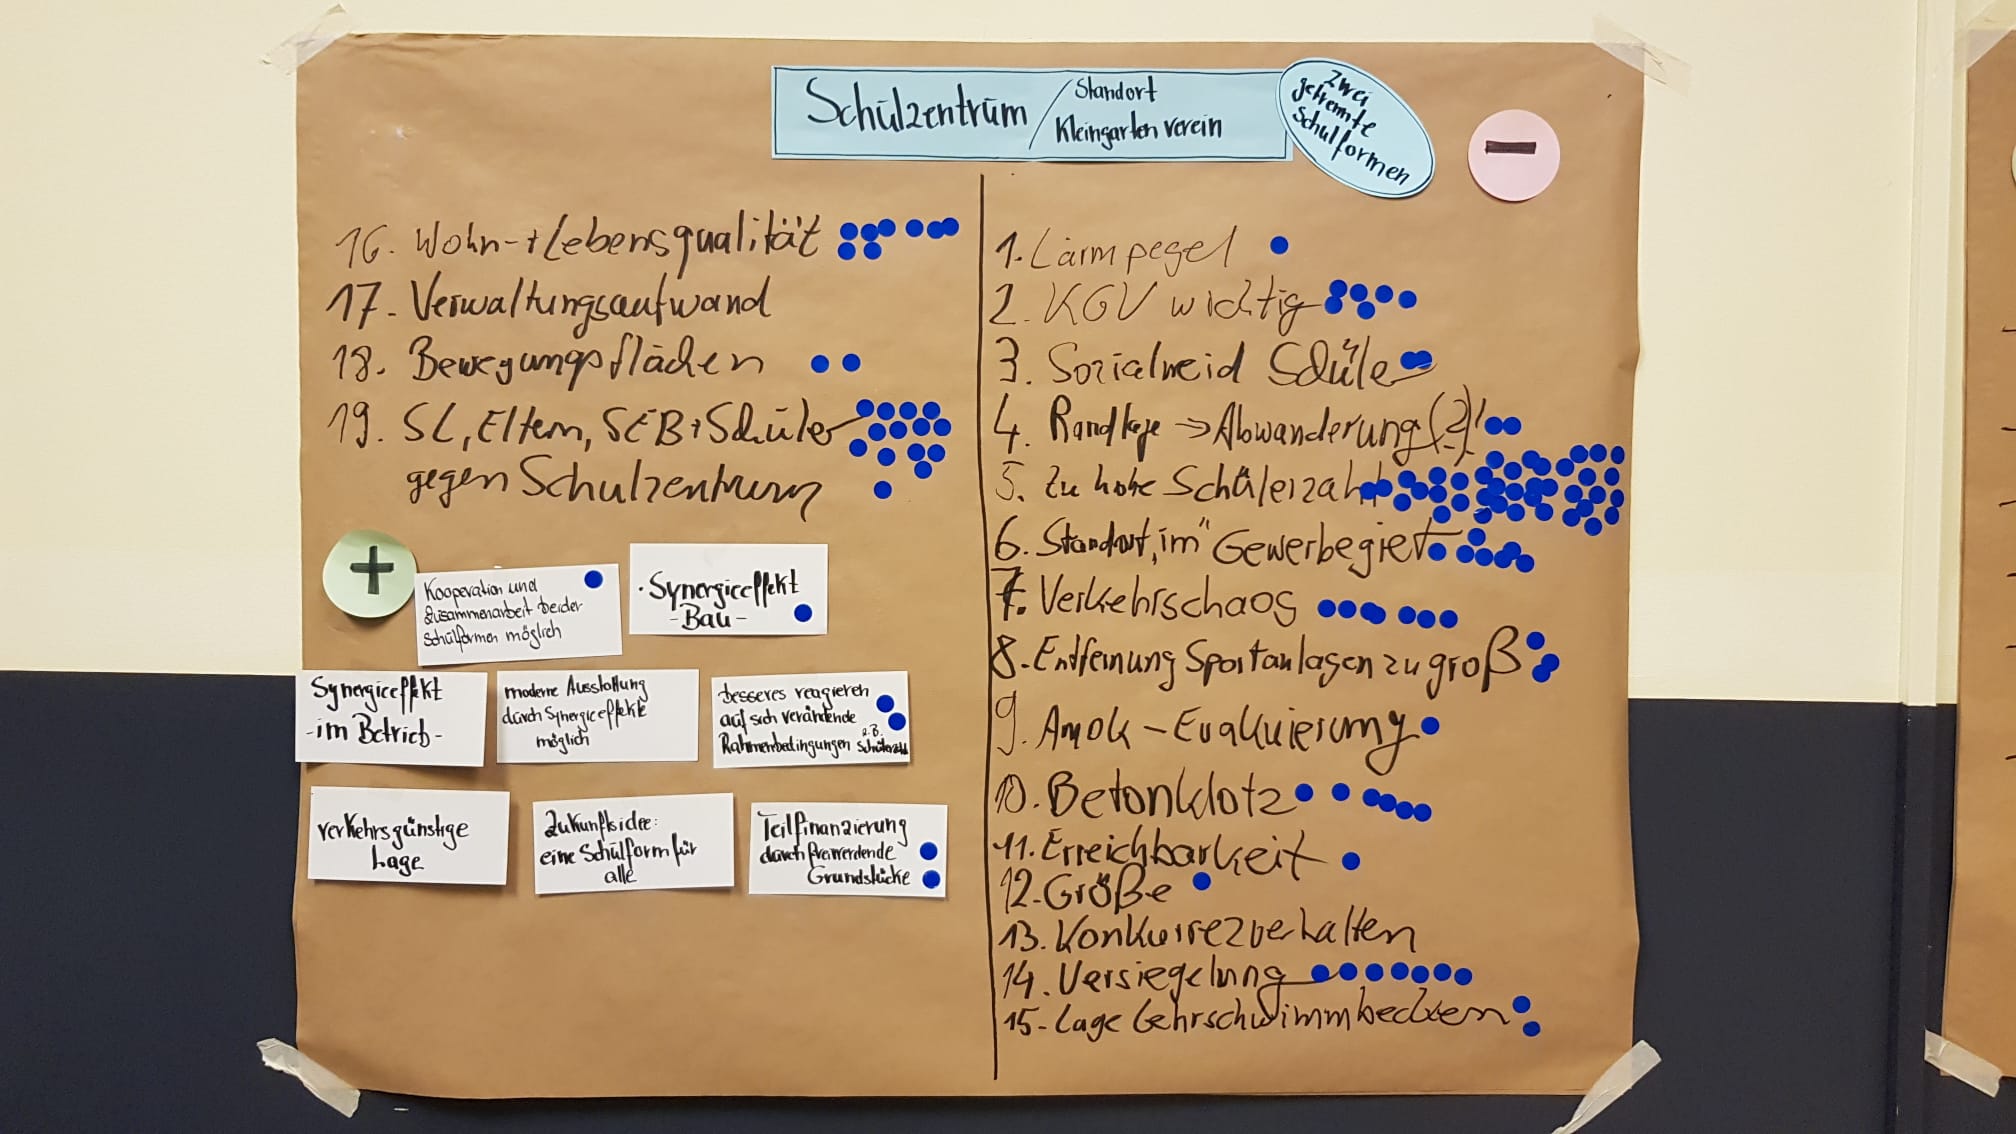 Schulzentrum / Standort
Kleingartenverein
Zwei
getrennte
Schulformen
16. Wohn- + Lebensqualität
17. Verwaltungsaufwand
18. Bewegungsflächen
19. SL, Eltern, SEB + Schüler
gegen Schulzentrum
+
Kooperation und
Zusammenarbeit beider
Schulformen möglich
· Synergieeffekt
- Bau -
Synergieeffekt
- im Betrieb -
moderne Ausstattung
durch Synergieeffekte
möglich
besseres reagieren
auf sich verändende
Rahmenbedingungen z.B. Schülerzahl
verkehrsgünstige
Lage
Zukunftsidee:
eine Schulform für
alle
Teilfinanzierung
durch freiwerdende
Grundstücke
–
1. Lärmpegel
2. KGV wichtig
3. Sozialneid Schüler
4. Randlage → Abwanderung (2)!
5. Zu hohe Schülerzahl
6. Standort „im" Gewerbegiet
7. Verkehrschaos
8. Entfernung Sportanlagen zu groß
9. Amok - Evakuierung
10. Betonklotz
11. Erreichbarkeit
12. Größe
13. Konkurrezverhalten
14. Versiegelung
15. Lage Lehrschwimmbecken